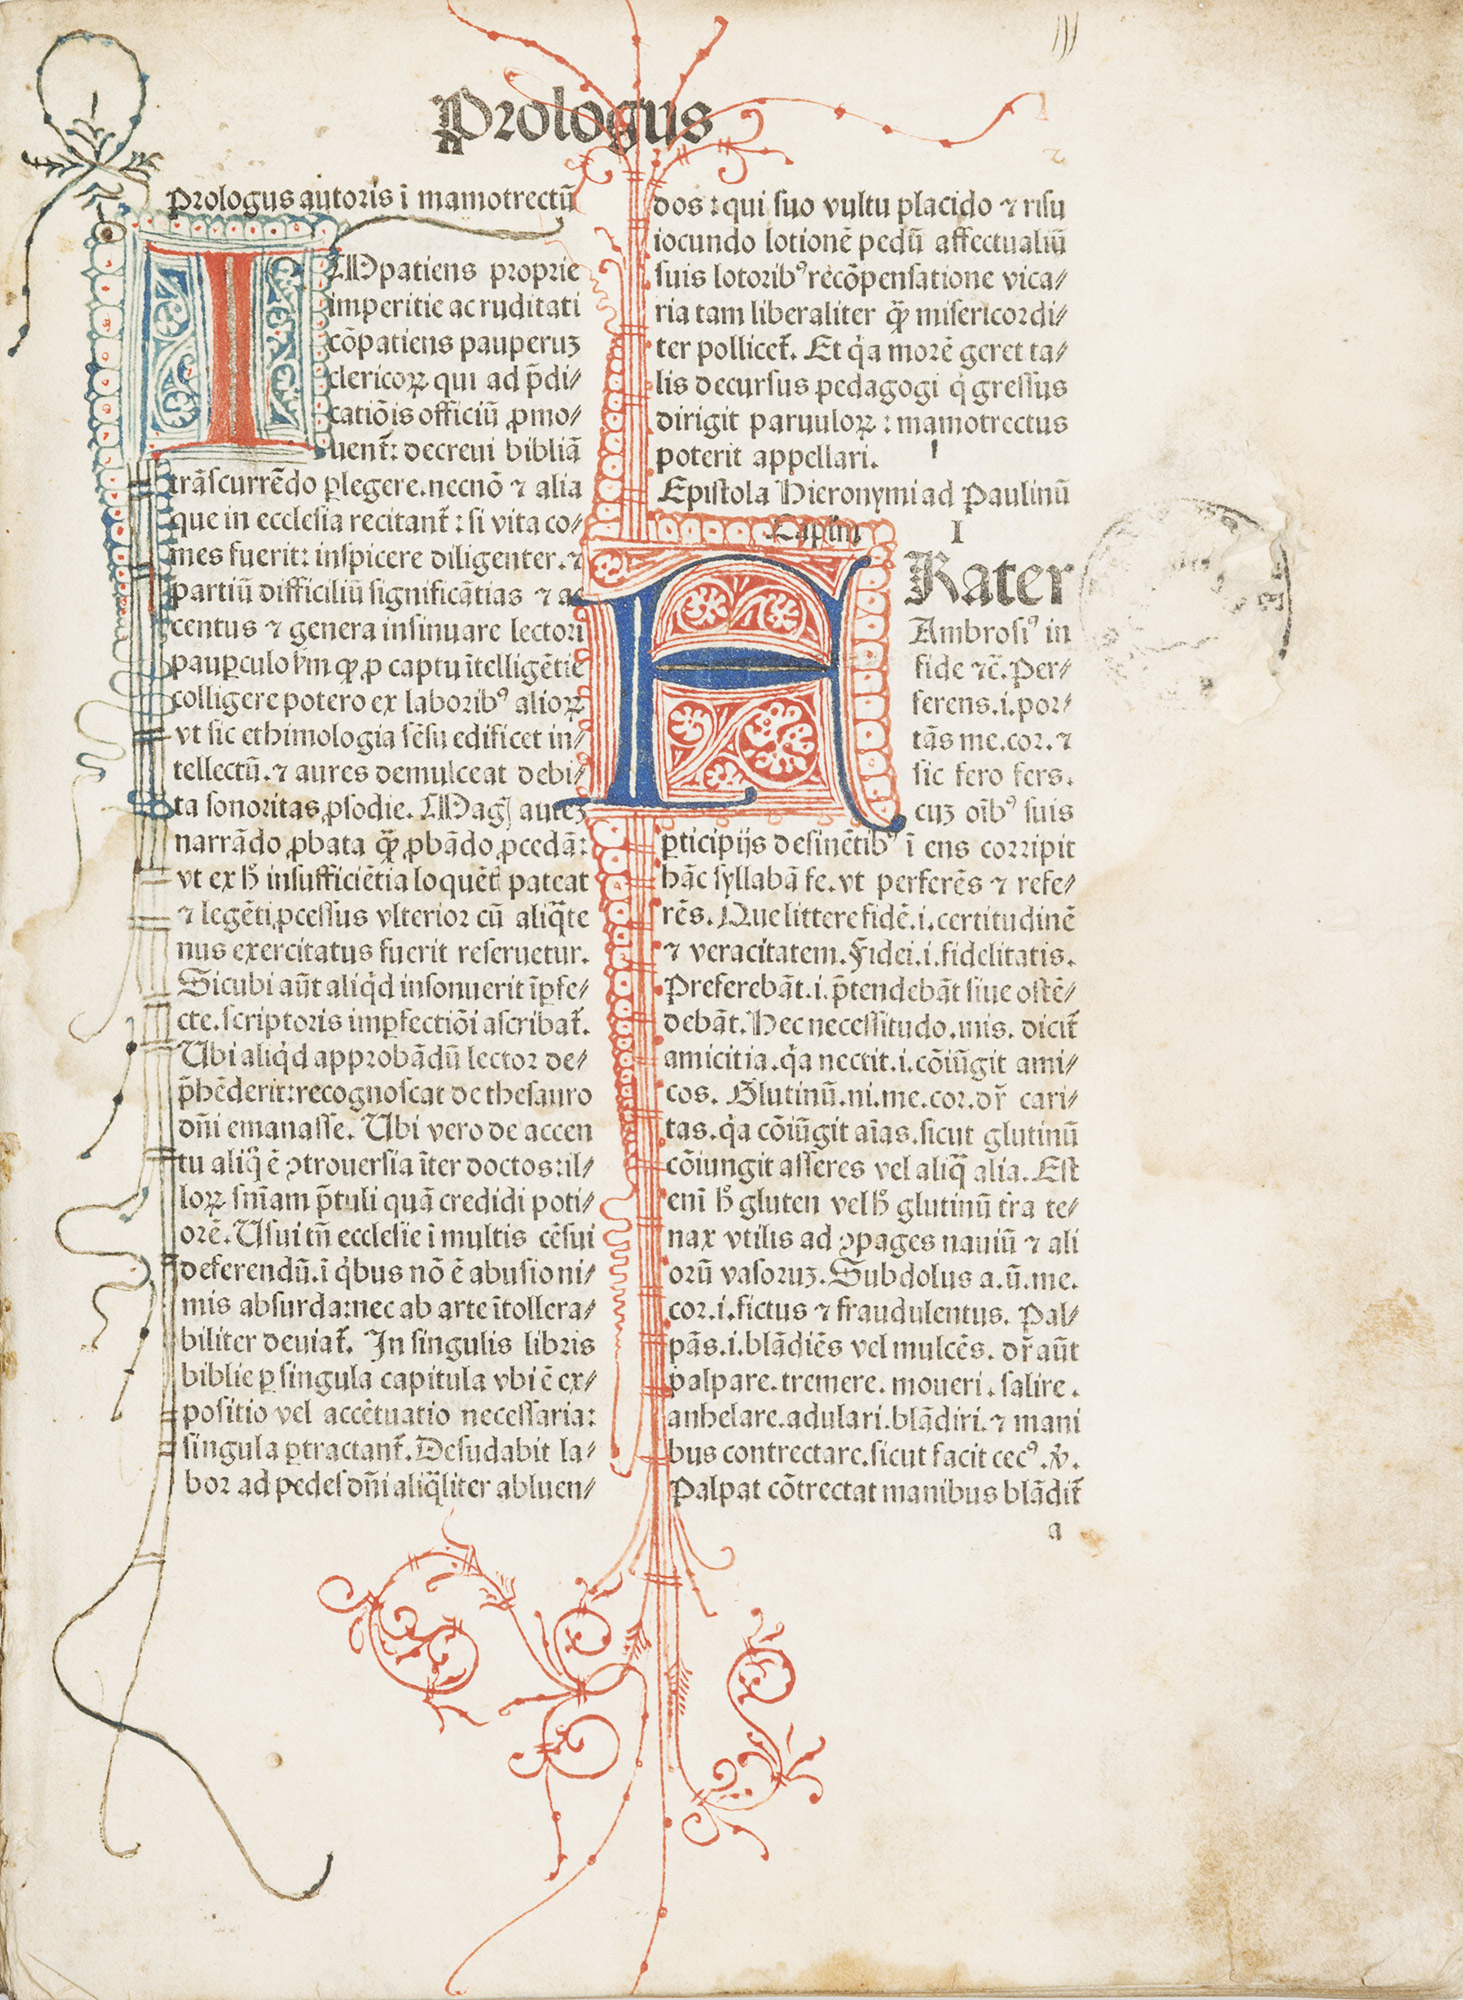 Prologus
Prologus autoris ī mamotrectū
IMpatiens proprie
imperitie ac ruditati
cōpatiens pauperuꝫ
clericoꝝ qui ad p̄di⸗
catiōis officiū ꝓmo⸗
uent᷑: decreui bibliā
trāscurrēdo ꝑlegere.necnō ⁊ alia
que in ecclesia recitant᷑: si vita co⸗
mes fuerit: inspicere diligenter.⁊
partiū difficiliū significātias ⁊ ac
centus ⁊ genera insinuare lectori
pauꝑculo ꝙ ꝓ captu ītelligētie
colligere potero ex laboribꝰ alioꝝ
vt sic ethimologia sēsu edificet in⸗
tellectū.⁊ aures demulceat debi⸗
ta sonoritas ꝓsodie. Mag auteꝫ
narrādo ꝓbata ꝙ̄ ꝓbādo ꝓcedā:
vt ex h̄ insufficiētia loquētꝭ pateat
⁊ legēti ꝓcessus vlterior cū aliq̄te
nus exercitatus fuerit reseruetur.
Sicubi aūt aliq̇d insonuerit īꝑfe⸗
cte.scriptoris imꝑfectiōi ascribat᷑.
Ubi aliq̇d approbādū lector de⸗
p̄hēderit:recognoscat de thesauro
dn̄i emanasse. Ubi vero de accen
tu aliq̄ ē ꝯtrouersia īter doctos:il⸗
loꝝ sn̄iam p̄tuli quā credidi poti⸗
orē. Usui tn̄ ecclesie ī multis cēsui
deferendū.ī q̇bus nō ē abusio ni⸗
mis absurda:nec ab arte ītollera⸗
biliter deuiat᷑. In singulis libris
biblie ꝑ singula capitula vbi ē ex⸗
positio vel accētuatio necessaria:
singula ꝑtractant᷑. Desudabit la⸗
bor ad pedes dn̄i aliq̄liter abluen⸗
dos: qui suo vultu placido ⁊ risu
iocundo lotionē pedū affectualiū
suis lotoribꝰ recōpensatione vica⸗
ria tam liberaliter ꝙ̄ misericordi⸗
ter pollicet᷑. Et q̇a morē geret ta⸗
lis decursus pedagogi q̇ gressus
dirigit paruuloꝝ: mamotrectus
poterit appellari.
Epistola Hieronymi ad Paulinū
Capm̄ I
FRater
Ambrosiꝰ in
fide ⁊c̄. Per⸗
ferens.i.por⸗
tās me.cor. ⁊
sic fero fers.
cuꝫ oībꝰ suis
ꝑticipijs desinētibꝰ ī ens corripit
hāc syllabā fe. vt perferēs ⁊ refe⸗
rēs. Que littere fidē.i.certitudinē
⁊ veracitatem. Fidei.i.fidelitatis.
Preferebāt.i.p̄tendebāt siue ostē⸗
debāt. Hec necessitudo.inis. dicit᷑
amicitia.q̇a nectit.i.cōiūgit ami⸗
cos. Glutinū.ni.me.cor.dr̄ cari⸗
tas.q̇a cōiūgit aīas.sicut glutinū
cōiungit asseres vel aliq̄ alia. Est
enī h̄ gluten vel h̄ glutinū tr̄a te⸗
nax vtilis ad ꝯpages nauiū ⁊ ali
orū vasoruꝫ. Subdolus a.ū.me.
cor.i.fictus ⁊ fraudulentus. Pal⸗
pās.i.blādiēs vel mulcēs. dr̄ aūt
palpare.tremere.moueri.salire.
anhelare.adulari.blādiri.⁊ mani
bus contrectare.sicut facit cecꝰ.
Palpat cōtrectat manibus blādit᷑
a